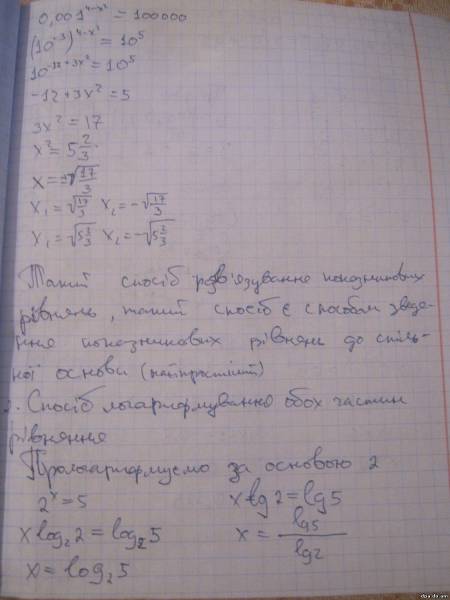 0,001^{4-x²} = 100000
(10^{-3})^{4-x²} = 10^5
10^{-12+3x²} = 10^5
-12+3x² = 5
3x² = 17
x² = 5 2/3
x = ±√(17/3)
x₁ = √(17/3) x₂ = -√(17/3)
x₁ = √(5 2/3) x₂ = -√(5 2/3)
Такий спосіб розв'язування показникових
рівнянь, такий спосіб є способом зведе-
ння показникових рівнянь до спіль-
ної основи (найпростіший)
2. Спосіб логарифмування обох частин
рівняння
Прологарифмуємо за основою 2
2^x = 5 x lg 2 = lg 5
x log₂ 2 = log₂ 5 x = lg 5 / lg 2
x = log₂ 5
dpa.do.am